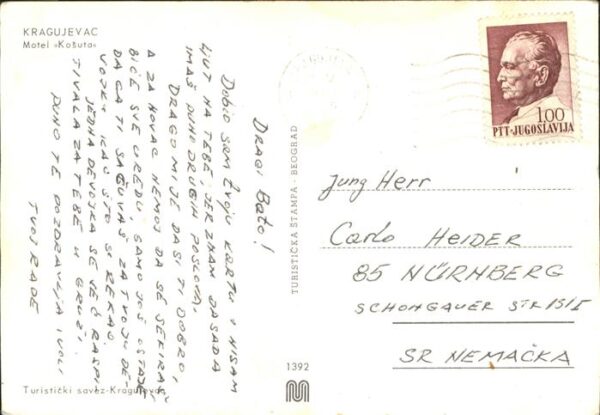 KRAGUJEVAC
Motel »Košuta«
DRAGI BATO!
DOBIO SAM TVOJU KARTU I NISAM
LJUT NA TEBE, JER ZNAM DA SADA
IMAŠ PUNO DRUGIH POSLOVA,
DRAGO MI JE DA SI TI DOBRO,
A ZA NOVAC NEMOJ DA SE SEKIRAŠ
BIĆE SVE U REDU, SAMO JOŠ OSTAJE
DA GA TI SAČUVAŠ ZA TVOJU DE
VOJKU KAO ŠTO SI REKAO.
JEDNA DEVOJKA SE VEĆ RASPI
TIVALA ZA TEBE U GRUŽI.
PUNO TE POZDRAVLJA I VOLI
TVOJ RADE
Turistički savez-Kragujevac
TURISTIČKA ŠTAMPA - BEOGRAD
1392
1.00
PTT-JUGOSLAVIJA
Jung Herr
Carlo HEIDER
85 NÜRNBERG
SCHONGAUER STR
SR NEMAČKA